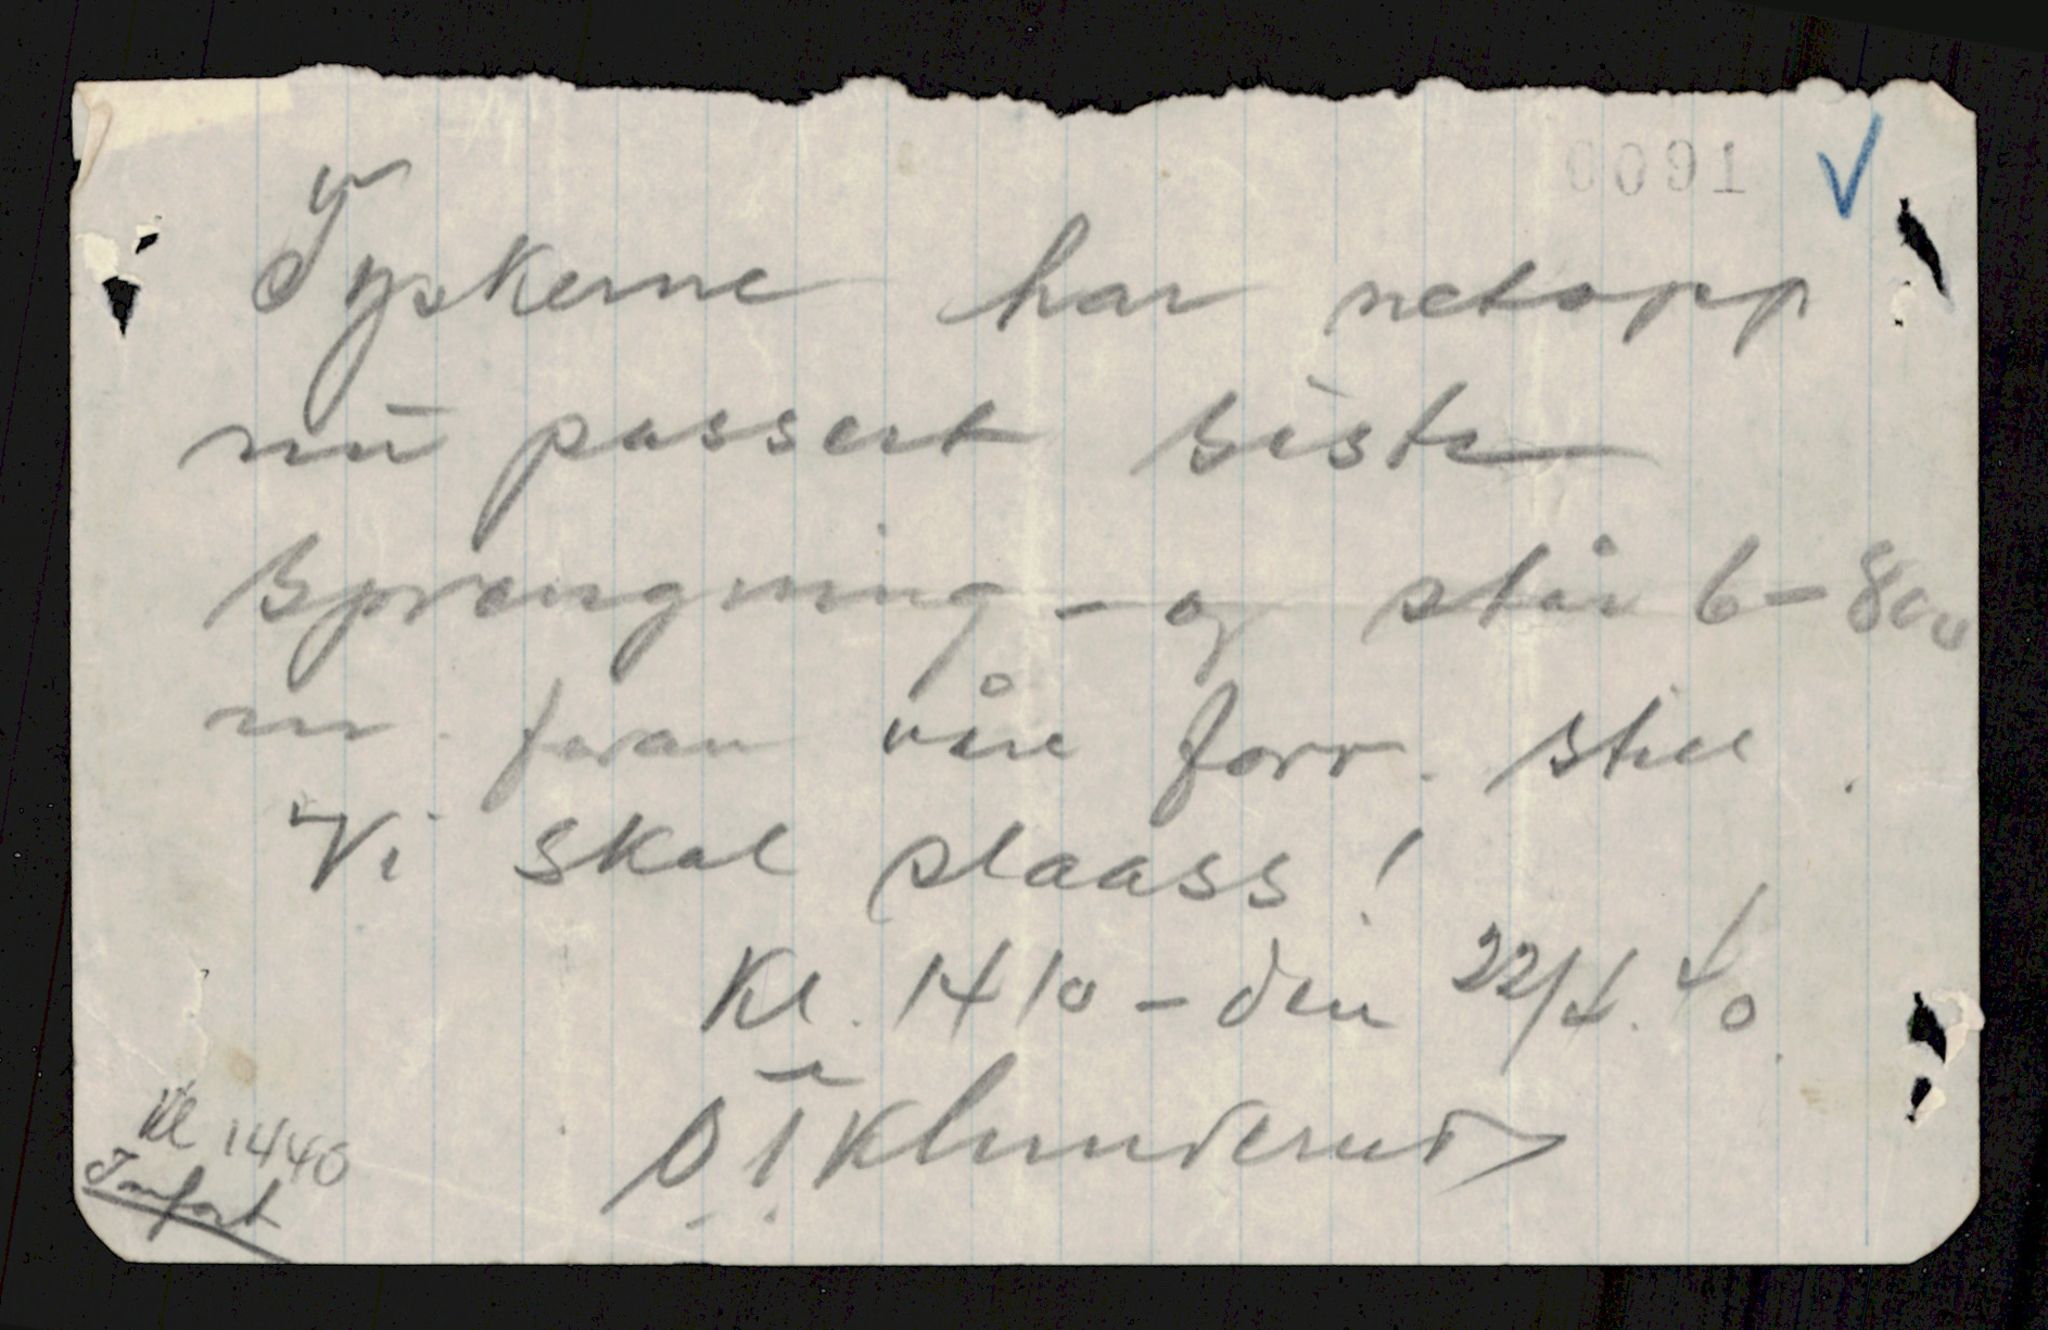 0091
Tyskerne har netopp
nu passert siste
sprengning - og står 6-800
m. foran våre forr. still.
Vi skal slaass!
Kl. 1410 - den 22/4.40
O T Klunderud
Kl 1440